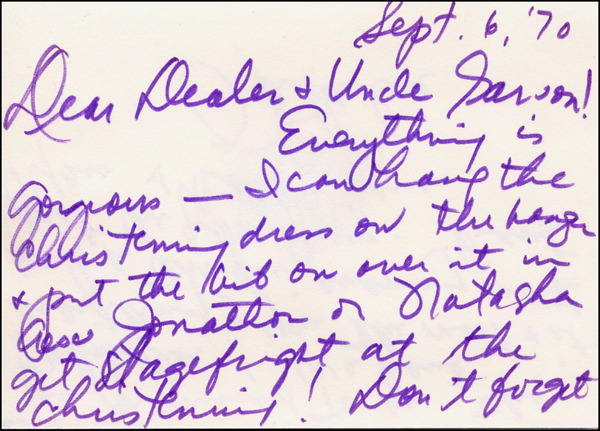 Sept. 6, '70
Dear Dealer & Uncle Garson!
Everything is
gorgeous — I can hang the
christenning dress on the hanger
& put the bib on over it in
case Jonathon or Natasha
get stagefright at the
christenning! Don't forget